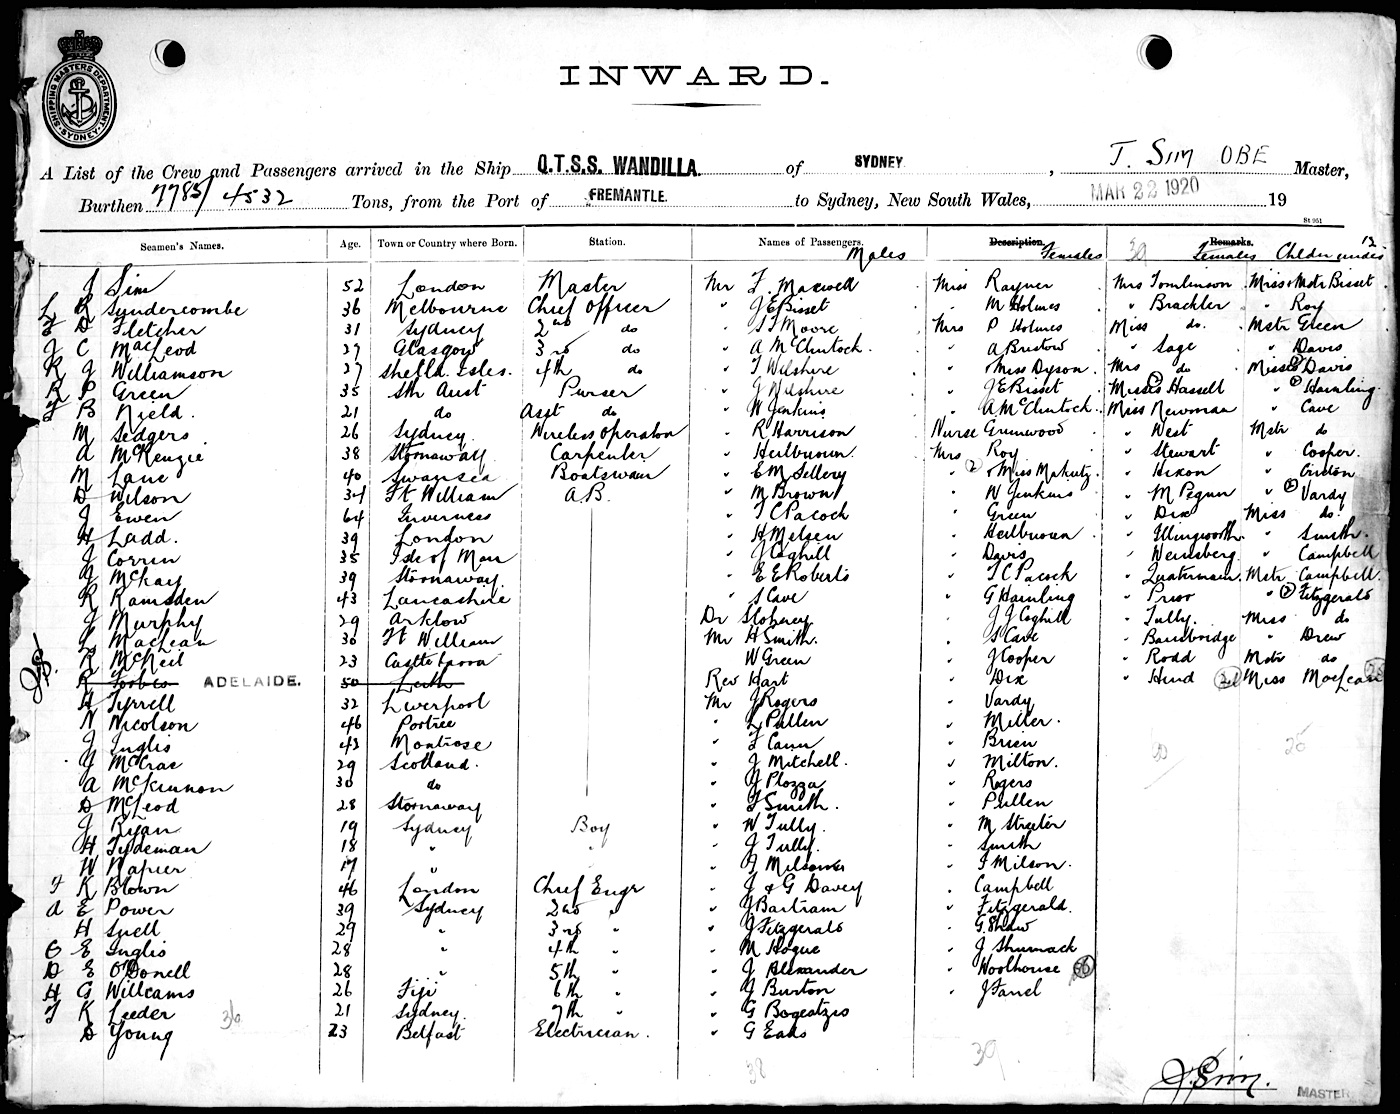 SHIPPING MASTERS DEPARTMENT SYDNEY
INWARD.
A List of the Crew and Passengers arrived in the Ship Q.T.S.S. WANDILLA. of SYDNEY, J. Sim OBE Master,
Burthen 7785/4532 Tons, from the Port of FREMANTLE. to Sydney, New South Wales, MAR 22 1920 19
St 951
Seamen's Names. Age. Town or Country where Born. Station. Names of Passengers. Males Description. Females 39 Remarks. Females Childer under 12
J Sim 52 London Master Mr F. Maxwell Miss Rayner Mrs Tomlinson Miss & Mstr Bisset
L R Syndercombe 36 Melbourne Chief Officer " J E Bisset " M Holmes " Brackler " Roy
F D Fletcher 31 Sydney 2nd do " J J Moore Mrs P Holmes Miss do. Mstr Green
J C MacLeod 27 Glasgow 3rd do " A McClintock. " A Bristow " Sage " Davis
R J Williamson 27 Shetld. Isles. 4th do " T Wilshire " & Miss Dyson. Mrs do Misses Davis
R P Green 35 Sth Aust Purser " J Wilshire " J E Bisset Misses Hassell " (2) Hamling
F B Nield. 21 do Asst do " W Jenkins " A McClintock. Miss Newman " Cave
M Sedgers 26 Sydney Wireless Operator " R Harrison Nurse Greenwood " West Mstr do
A McKenzie 38 Stornaway Carpenter " Heilbuoun Mrs Roy " Stewart " Cooper.
M Lane 40 Swansea Boatswain " E M Sellery " (2) & Miss Makutz " Hixon
D Wilson 34 Ft William A.B. " M Brown " W Jenkins " M Pegum " (2) Vardy
J Ewen 64 Inverness " T C Pacock " Green " Dix Miss do.
H Ladd. 39 London " H Melsen " Heilbuoun " Illingworth " Smith.
J Corrin 35 Isle of Man " J Coghill " Davis " Weinsberg " Campbell
J McKay 39 Stornaway " E E Roberts " T C Pacock " Quatermain. Mstr Campbell.
R Ramsden 43 Lancashire " S Cave " G Hamling " Prior " (2) Fitzgerald
J Murphy 29 Arklow Dr Sloperey " J J Coghill " Tully. Miss do
L MacLean 30 Ft William Mr H Smith. " S Cave " Bainbridge " Drew
R McNeil 23 Castlebarra W Green " J Cooper " Rodd Mstr do
R Forbes ADELAIDE. 50 Leith Rev Hart " Dix " Hind (21) Miss MacLean
H Tyrrell 32 Liverpool Mr J Rogers " Vardy
N Nicolson 46 Portree " L Pullen " Miller.
J Inglis 43 Montrose " F Cann " Brien
J McCrae 29 Scotland. " J Mitchell. " Milton.
A McKinnon 30 do " J Plozza " Rogers
D McLeod 28 Stornaway " T Smith. " Pullen
J Ryan 19 Sydney Boy " W Tully. " M Streeter
H Tydeman 18 " " " J Tully. " Smith
W Napier 17 " " Milsom " F Milson.
F K Blown 46 London Chief Engr " J & G Davey " Campbell
A E Power 39 Sydney 2nd " " J Bartram " Fitzgerald.
H Snell 29 " 3rd " " J Fitzgerald " G. Shaw
O E Inglis 28 " 4th " " M Hogue " J Shumack
D E O'Donell 28 " 5th " " J Alexander " Woolhouse
H G Willcams 26 Fiji 6th " " J Burton " J Farrel
F K Leeder 21 Sydney. 7th " " G Bogeatzis
D Young 23 Belfast Electrician. " G Eades
36 39
J. Sim.
MASTER